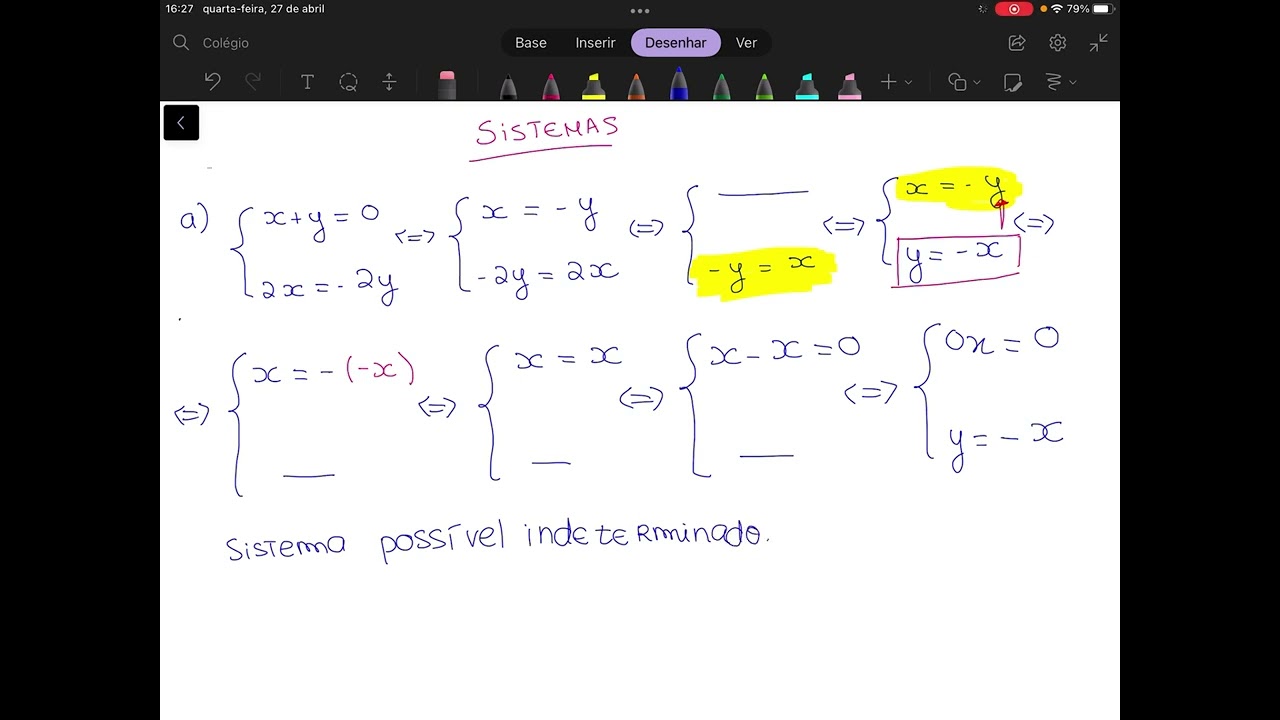 16:27 quarta-feira, 27 de abril 79%
Colégio Base Inserir Desenhar Ver
SISTEMAS
a) { x + y = 0 <=> { x = - y <=> { ___ <=> { x = - y <=>
2x = - 2y -2y = 2x - y = x y = - x
<=> { x = - (-x) <=> { x = x <=> { x - x = 0 <=> { 0x = 0
___ ___ ___ y = - x
Sistema possível indeterminado.